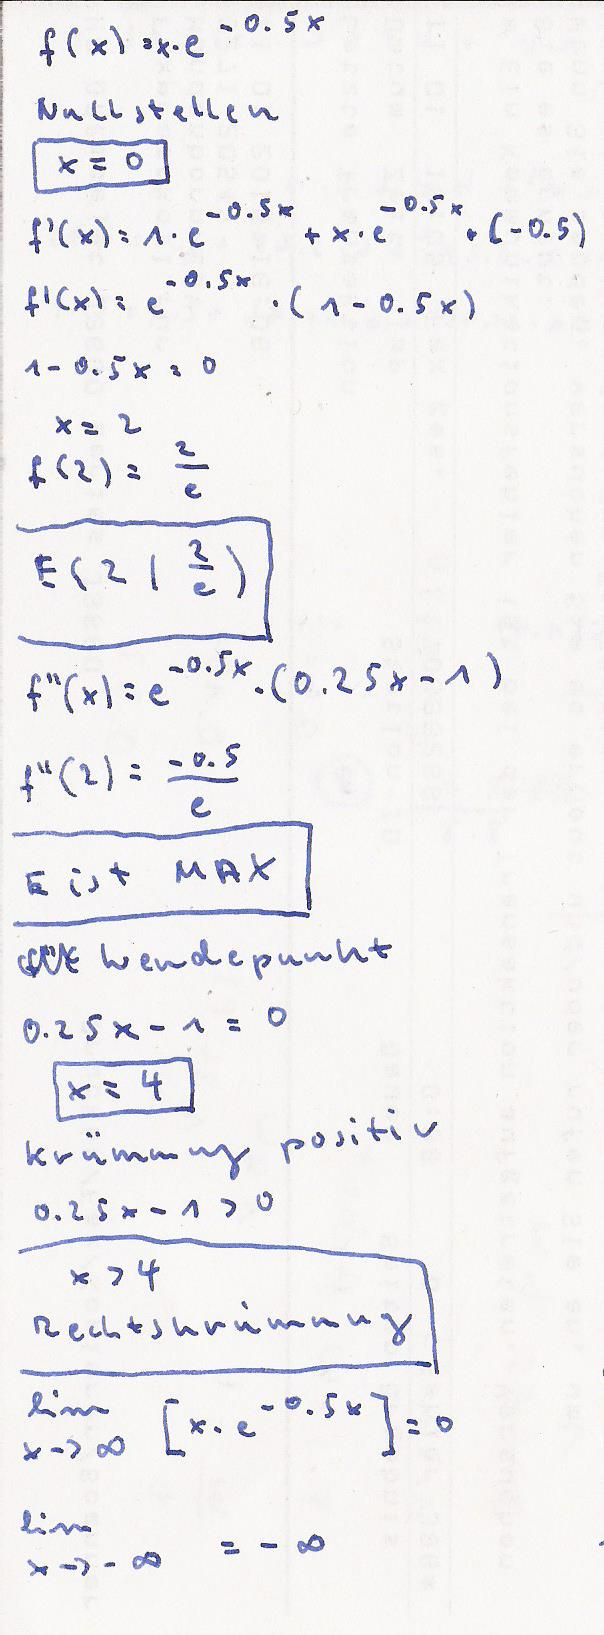 f(x) = x·e^-0.5x
Nullstellen
x = 0
f'(x) = 1·e^-0.5x + x·e^-0.5x · (-0.5)
f'(x) = e^-0.5x · (1 - 0.5x)
1 - 0.5x = 0
x = 2
f(2) = 2/e
E(2 | 2/e)
f"(x) = e^-0.5x · (0.25x - 1)
f"(2) = -0.5/e
E ist MAX
Wendepunkt
0.25x - 1 = 0
x = 4
Krümmung positiv
0.25x - 1 > 0
x > 4
Rechtskrümmung
lim x->∞ [x·e^-0.5x] = 0
lim x->-∞ = -∞